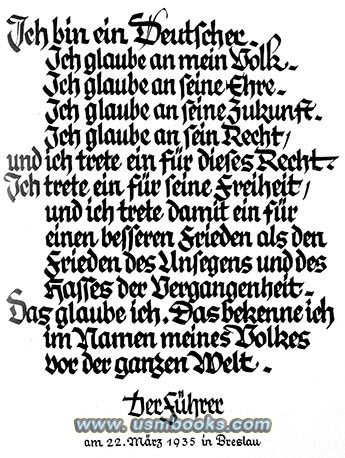 Ich bin ein Deutscher.
Ich glaube an mein Volk.
Ich glaube an seine Ehre.
Ich glaube an seine Zukunft.
Ich glaube an sein Recht,
und ich trete ein für dieses Recht.
Ich trete ein für seine Freiheit,
und ich trete damit ein für
einen besseren Frieden als den
Frieden des Unsegens und des
Hasses der Vergangenheit.
Das glaube ich. Das bekenne ich
im Namen meines Volkes
vor der ganzen Welt.
Der Führer
www.usmbooks.com
am 22. März 1935 in Breslau